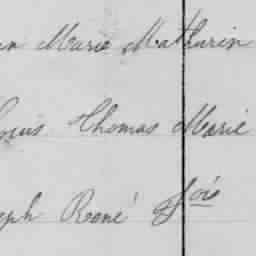 an Marie Mathurin
ouis Thomas Marie
eph René